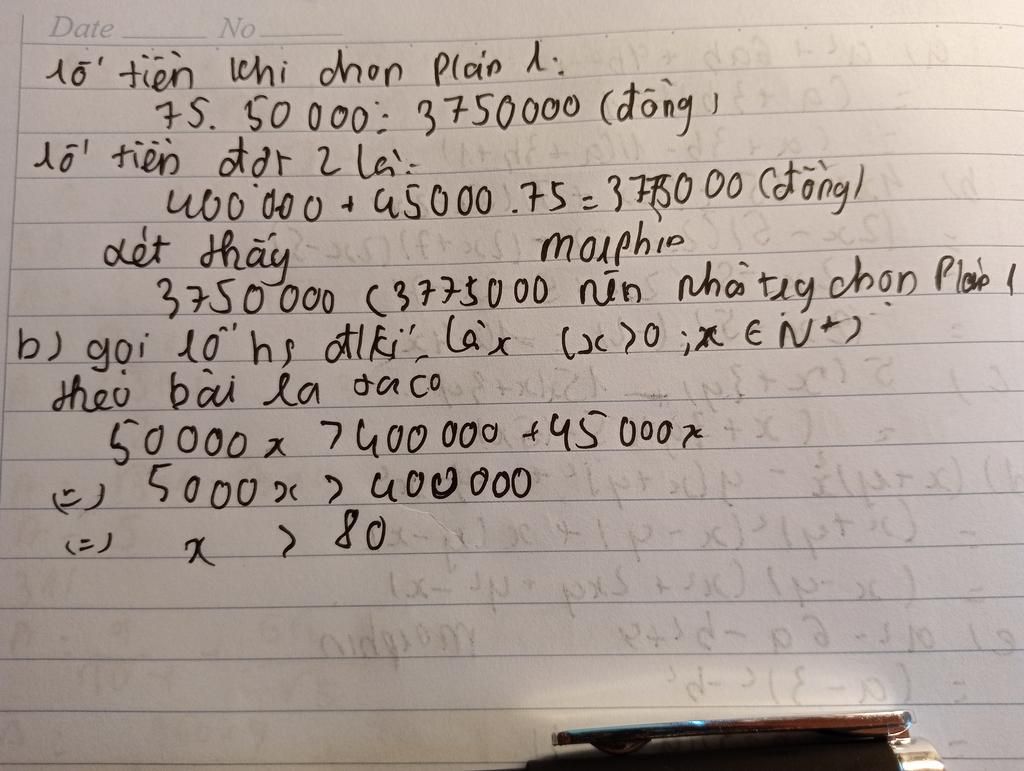 Date No
số tiền khi chọn Plan 1:
75. 50 000 = 3750000 (đồng)
số tiền đợt 2 là:
400 000 + 45000 .75 = 3775000 (đồng)
xét thấy morphin
3750 000 < 3775000 nên nhà tr chọn Plan 1
b) gọi số hs đki là x (x>0 ; x ∈ N*)
theo bài ra ta có
50000 x > 400 000 + 45 000x
(=) 5000x > 400000
(=) x > 80